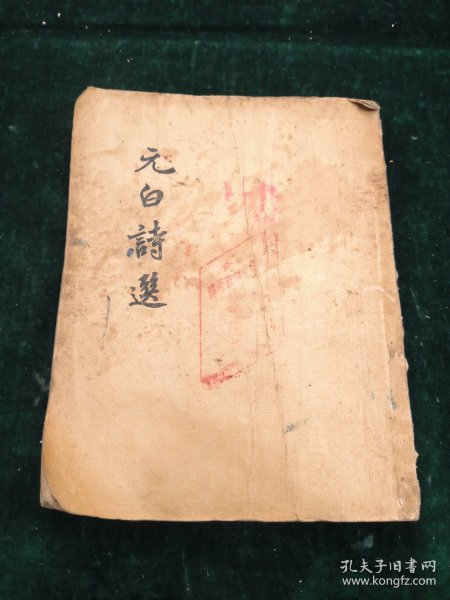 元白詩選
孔夫子旧书网
www.kongfz.com